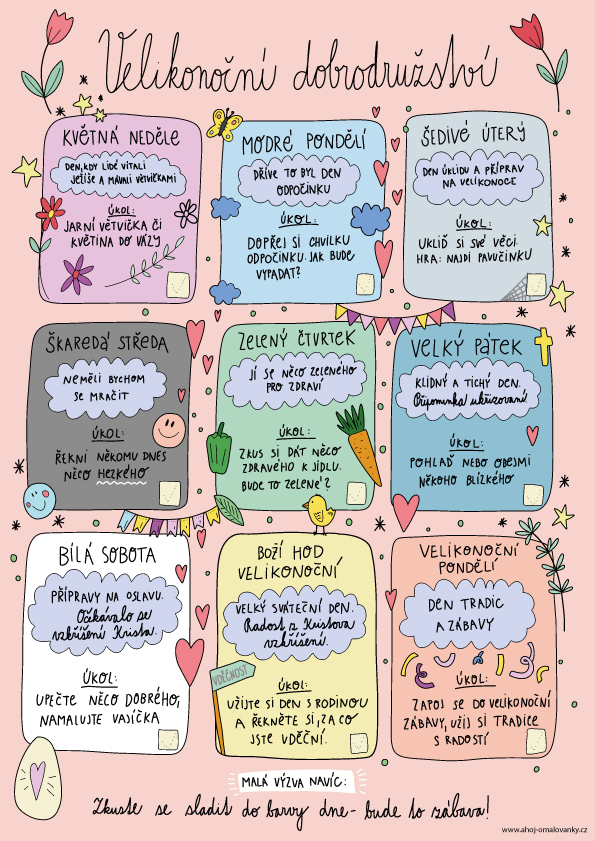 Velikonoční dobrodružství
KVĚTNÁ NEDĚLE
DEN, KDY LIDÉ VÍTALI
JEŽÍŠE A MÁVALI VĚTVIČKAMI
ÚKOL:
JARNÍ VĚTVIČKA ČI
KVĚTINA DO VÁZY
MODRÉ PONDĚLÍ
DŘÍVE TO BYL DEN
ODPOČINKU
ÚKOL:
DOPŘEJ SI CHVILKU
ODPOČINKU. JAK BUDE
VYPADAT?
ŠEDIVÉ ÚTERÝ
DEN ÚKLIDU A PŘÍPRAV
NA VELIKONOCE
ÚKOL:
UKLIĎ SI SVÉ VĚCI.
HRA: NAJDI PAVUČINKU
ŠKAREDÁ STŘEDA
NEMĚLI BYCHOM
SE MRAČIT
ÚKOL:
ŘEKNI NĚKOMU DNES
NĚCO HEZKÉHO
ZELENÝ ČTVRTEK
JÍ SE NĚCO ZELENÉHO
PRO ZDRAVÍ
ÚKOL:
ZKUS SI DÁT NĚCO
ZDRAVÉHO K JÍDLU.
BUDE TO ZELENÉ?
VELKÝ PÁTEK
KLIDNÝ A TICHÝ DEN.
Připomínka ukřižování
ÚKOL:
POHLAĎ NEBO OBEJMI
NĚKOHO BLÍZKÉHO
BÍLÁ SOBOTA
PŘÍPRAVY NA OSLAVU.
Očekávalo se
vzkříšení Krista.
ÚKOL:
UPEČTE NĚCO DOBRÉHO,
NAMALUJTE VAJÍČKA
BOŽÍ HOD
VELIKONOČNÍ
VELKÝ SVÁTEČNÍ DEN.
Radost z Kristova
vzkříšení.
VDĚČNOST
ÚKOL:
UŽIJTE SI DEN S RODINOU
A ŘEKNĚTE SI, ZA CO
JSTE VDĚČNÍ.
VELIKONOČNÍ
PONDĚLÍ
DEN TRADIC
A ZÁBAVY
ÚKOL:
ZAPOJ SE DO VELIKONOČNÍ
ZÁBAVY, UŽIJ SI TRADICE
S RADOSTÍ
MALÁ VÝZVA NAVÍC:
Zkuste se sladit do barvy dne - bude to zábava!
www.ahoj-omalovanky.cz